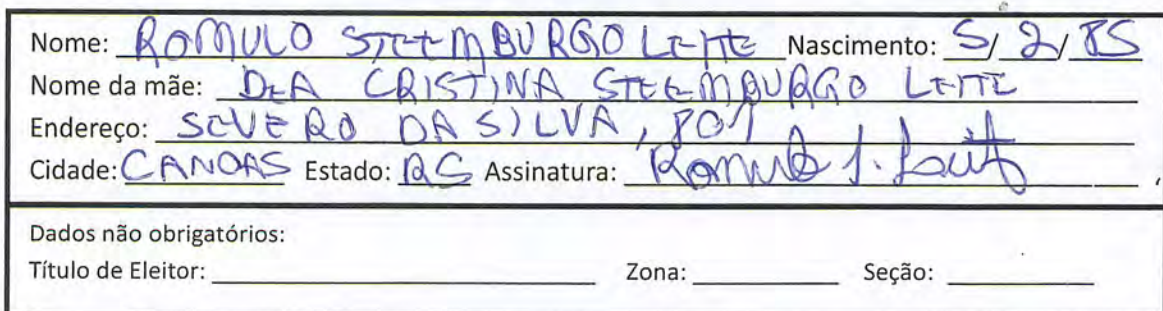 Nome: ROMULO STEEMBURGO LEITE Nascimento: 5/ 2/ 85
Nome da mãe: DEA CRISTINA STEEMBURGO LEITE
Endereço: SEVERO DA SILVA, 801
Cidade: CANOAS Estado: RS Assinatura: Romulo S. Leite
Dados não obrigatórios:
Título de Eleitor: Zona: Seção: